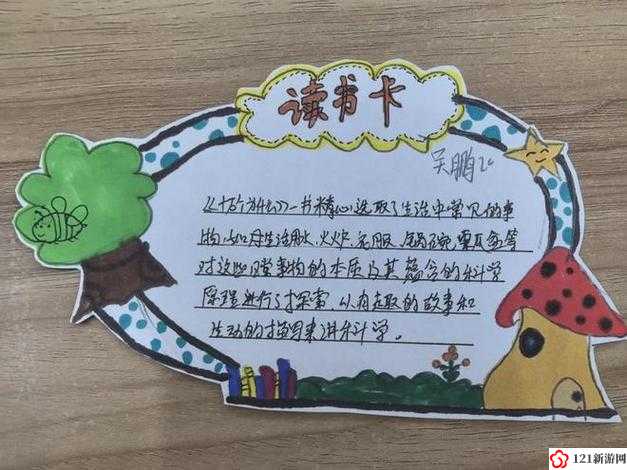 读书卡
吴鹏飞
《十万个为什么》一书精心选取了生活中常见的事
物,如用水、火炉、衣服、锅碗瓢盆等
对这些日常事物的本质及其蕴含的科学
原理进行了探索,以有趣的故事和
生动的描写来讲科学。
121新游网